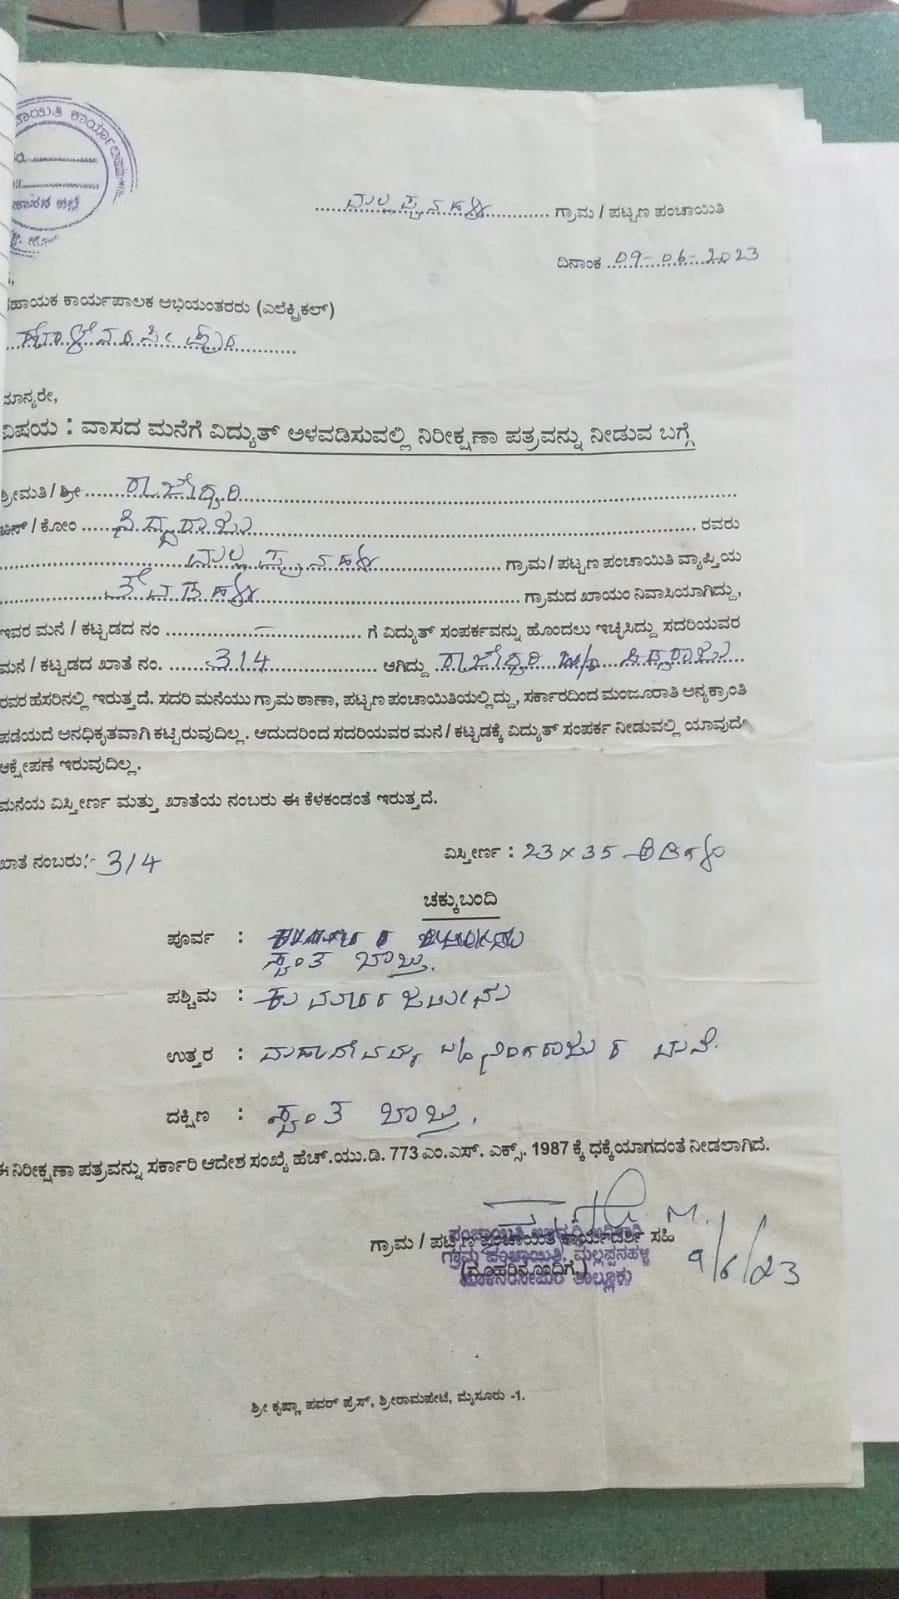 ಮಲ್ಲಪ್ಪನಹಳ್ಳಿ ಗ್ರಾಮ / ಪಟ್ಟಣ ಪಂಚಾಯಿತಿ
ದಿನಾಂಕ 09-06-2023
ಸಹಾಯಕ ಕಾರ್ಯಪಾಲಕ ಅಭಿಯಂತರರು (ಎಲೆಕ್ಟ್ರಿಕಲ್)
ಹೊಳೆನರಸೀಪುರ
ಮಾನ್ಯರೇ,
ವಿಷಯ : ವಾಸದ ಮನೆಗೆ ವಿದ್ಯುತ್ ಅಳವಡಿಸುವಲ್ಲಿ ನಿರೀಕ್ಷಣಾ ಪತ್ರವನ್ನು ನೀಡುವ ಬಗ್ಗೆ
ಶ್ರೀಮತಿ / ಶ್ರೀ ರಾಜೇಶ್ವರಿ
ಬಿನ್ / ಕೋಂ ಸಿದ್ದರಾಜು ರವರು
ಮಲ್ಲಪ್ಪನಹಳ್ಳಿ ಗ್ರಾಮ / ಪಟ್ಟಣ ಪಂಚಾಯಿತಿ ವ್ಯಾಪ್ತಿಯ
ಗ್ರಾಮದ ಖಾಯಂ ನಿವಾಸಿಯಾಗಿದ್ದು,
ಇವರ ಮನೆ / ಕಟ್ಟಡದ ನಂ - ಗೆ ವಿದ್ಯುತ್ ಸಂಪರ್ಕವನ್ನು ಹೊಂದಲು ಇಚ್ಛಿಸಿದ್ದು ಸದರಿಯವರ
ಮನೆ / ಕಟ್ಟಡದ ಖಾತೆ ನಂ. 314 ಆಗಿದ್ದು ರಾಜೇಶ್ವರಿ w/o ಸಿದ್ದರಾಜು
ರವರ ಹೆಸರಿನಲ್ಲಿ ಇರುತ್ತದೆ. ಸದರಿ ಮನೆಯು ಗ್ರಾಮ ಠಾಣಾ, ಪಟ್ಟಣ ಪಂಚಾಯಿತಿಯಲ್ಲಿದ್ದು, ಸರ್ಕಾರದಿಂದ ಮಂಜೂರಾತಿ ಅನ್ಯಕ್ರಾಂತಿ
ಪಡೆಯದೆ ಅನಧಿಕೃತವಾಗಿ ಕಟ್ಟಿರುವುದಿಲ್ಲ. ಆದುದರಿಂದ ಸದರಿಯವರ ಮನೆ / ಕಟ್ಟಡಕ್ಕೆ ವಿದ್ಯುತ್ ಸಂಪರ್ಕ ನೀಡುವಲ್ಲಿ ಯಾವುದೇ
ಆಕ್ಷೇಪಣೆ ಇರುವುದಿಲ್ಲ.
ಮನೆಯ ವಿಸ್ತೀರ್ಣ ಮತ್ತು ಖಾತೆಯ ನಂಬರು ಈ ಕೆಳಕಂಡಂತೆ ಇರುತ್ತದೆ.
ಖಾತೆ ನಂಬರು:- 314 ವಿಸ್ತೀರ್ಣ : 23 x 35 ಅಡಿಗಳು
ಚಕ್ಕುಬಂದಿ
ಪೂರ್ವ :
ಸ್ವಂತ ಬಾಬ್ತು.
ಪಶ್ಚಿಮ : ಕುಮಾರರ ಜಮೀನು
ಉತ್ತರ : ಮಹಾದೇವಮ್ಮ w/o ನಿಂಗರಾಜು ರ ಮನೆ.
ದಕ್ಷಿಣ : ಸ್ವಂತ ಬಾಬ್ತು.
ಈ ನಿರೀಕ್ಷಣಾ ಪತ್ರವನ್ನು ಸರ್ಕಾರಿ ಆದೇಶ ಸಂಖ್ಯೆ ಹೆಚ್.ಯು.ಡಿ. 773 ಎಂ.ಎಸ್. ಎಕ್ಸ್. 1987 ಕ್ಕೆ ಧಕ್ಕೆಯಾಗದಂತೆ ನೀಡಲಾಗಿದೆ.
ಗ್ರಾಮ / ಪಟ್ಟಣ ಪಂಚಾಯಿತಿ ಕಾರ್ಯದರ್ಶಿ ಸಹಿ
ಗ್ರಾಮ ಪಂಚಾಯಿತಿ, ಮಲ್ಲಪ್ಪನಹಳ್ಳಿ
9/6/23
(ಮೊಹರಿನೊಂದಿಗೆ)
ಶ್ರೀ ಕೃಷ್ಣಾ ಪವರ್ ಪ್ರೆಸ್, ಶ್ರೀರಾಮಪೇಟೆ, ಮೈಸೂರು -1.